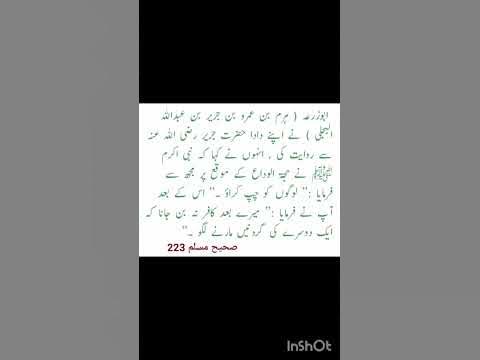 ابوزرعہ ( ہرم بن عمرو بن جریر بن عبداللہ
البجلی ) نے اپنے دادا حضرت جریر رضی اللہ عنہ
سے روایت کی ، انہوں نے کہا کہ نبی اکرم
ﷺ نے حجۃ الوداع کے موقع پر مجھ سے
فرمایا :'' لوگوں کو چپ کراؤ ۔'' اس کے بعد
آپ نے فرمایا :'' میرے بعد کافر نہ بن جانا کہ
ایک دوسرے کی گردنیں مارنے لگو ۔''
صحیح مسلم 223
InShOt